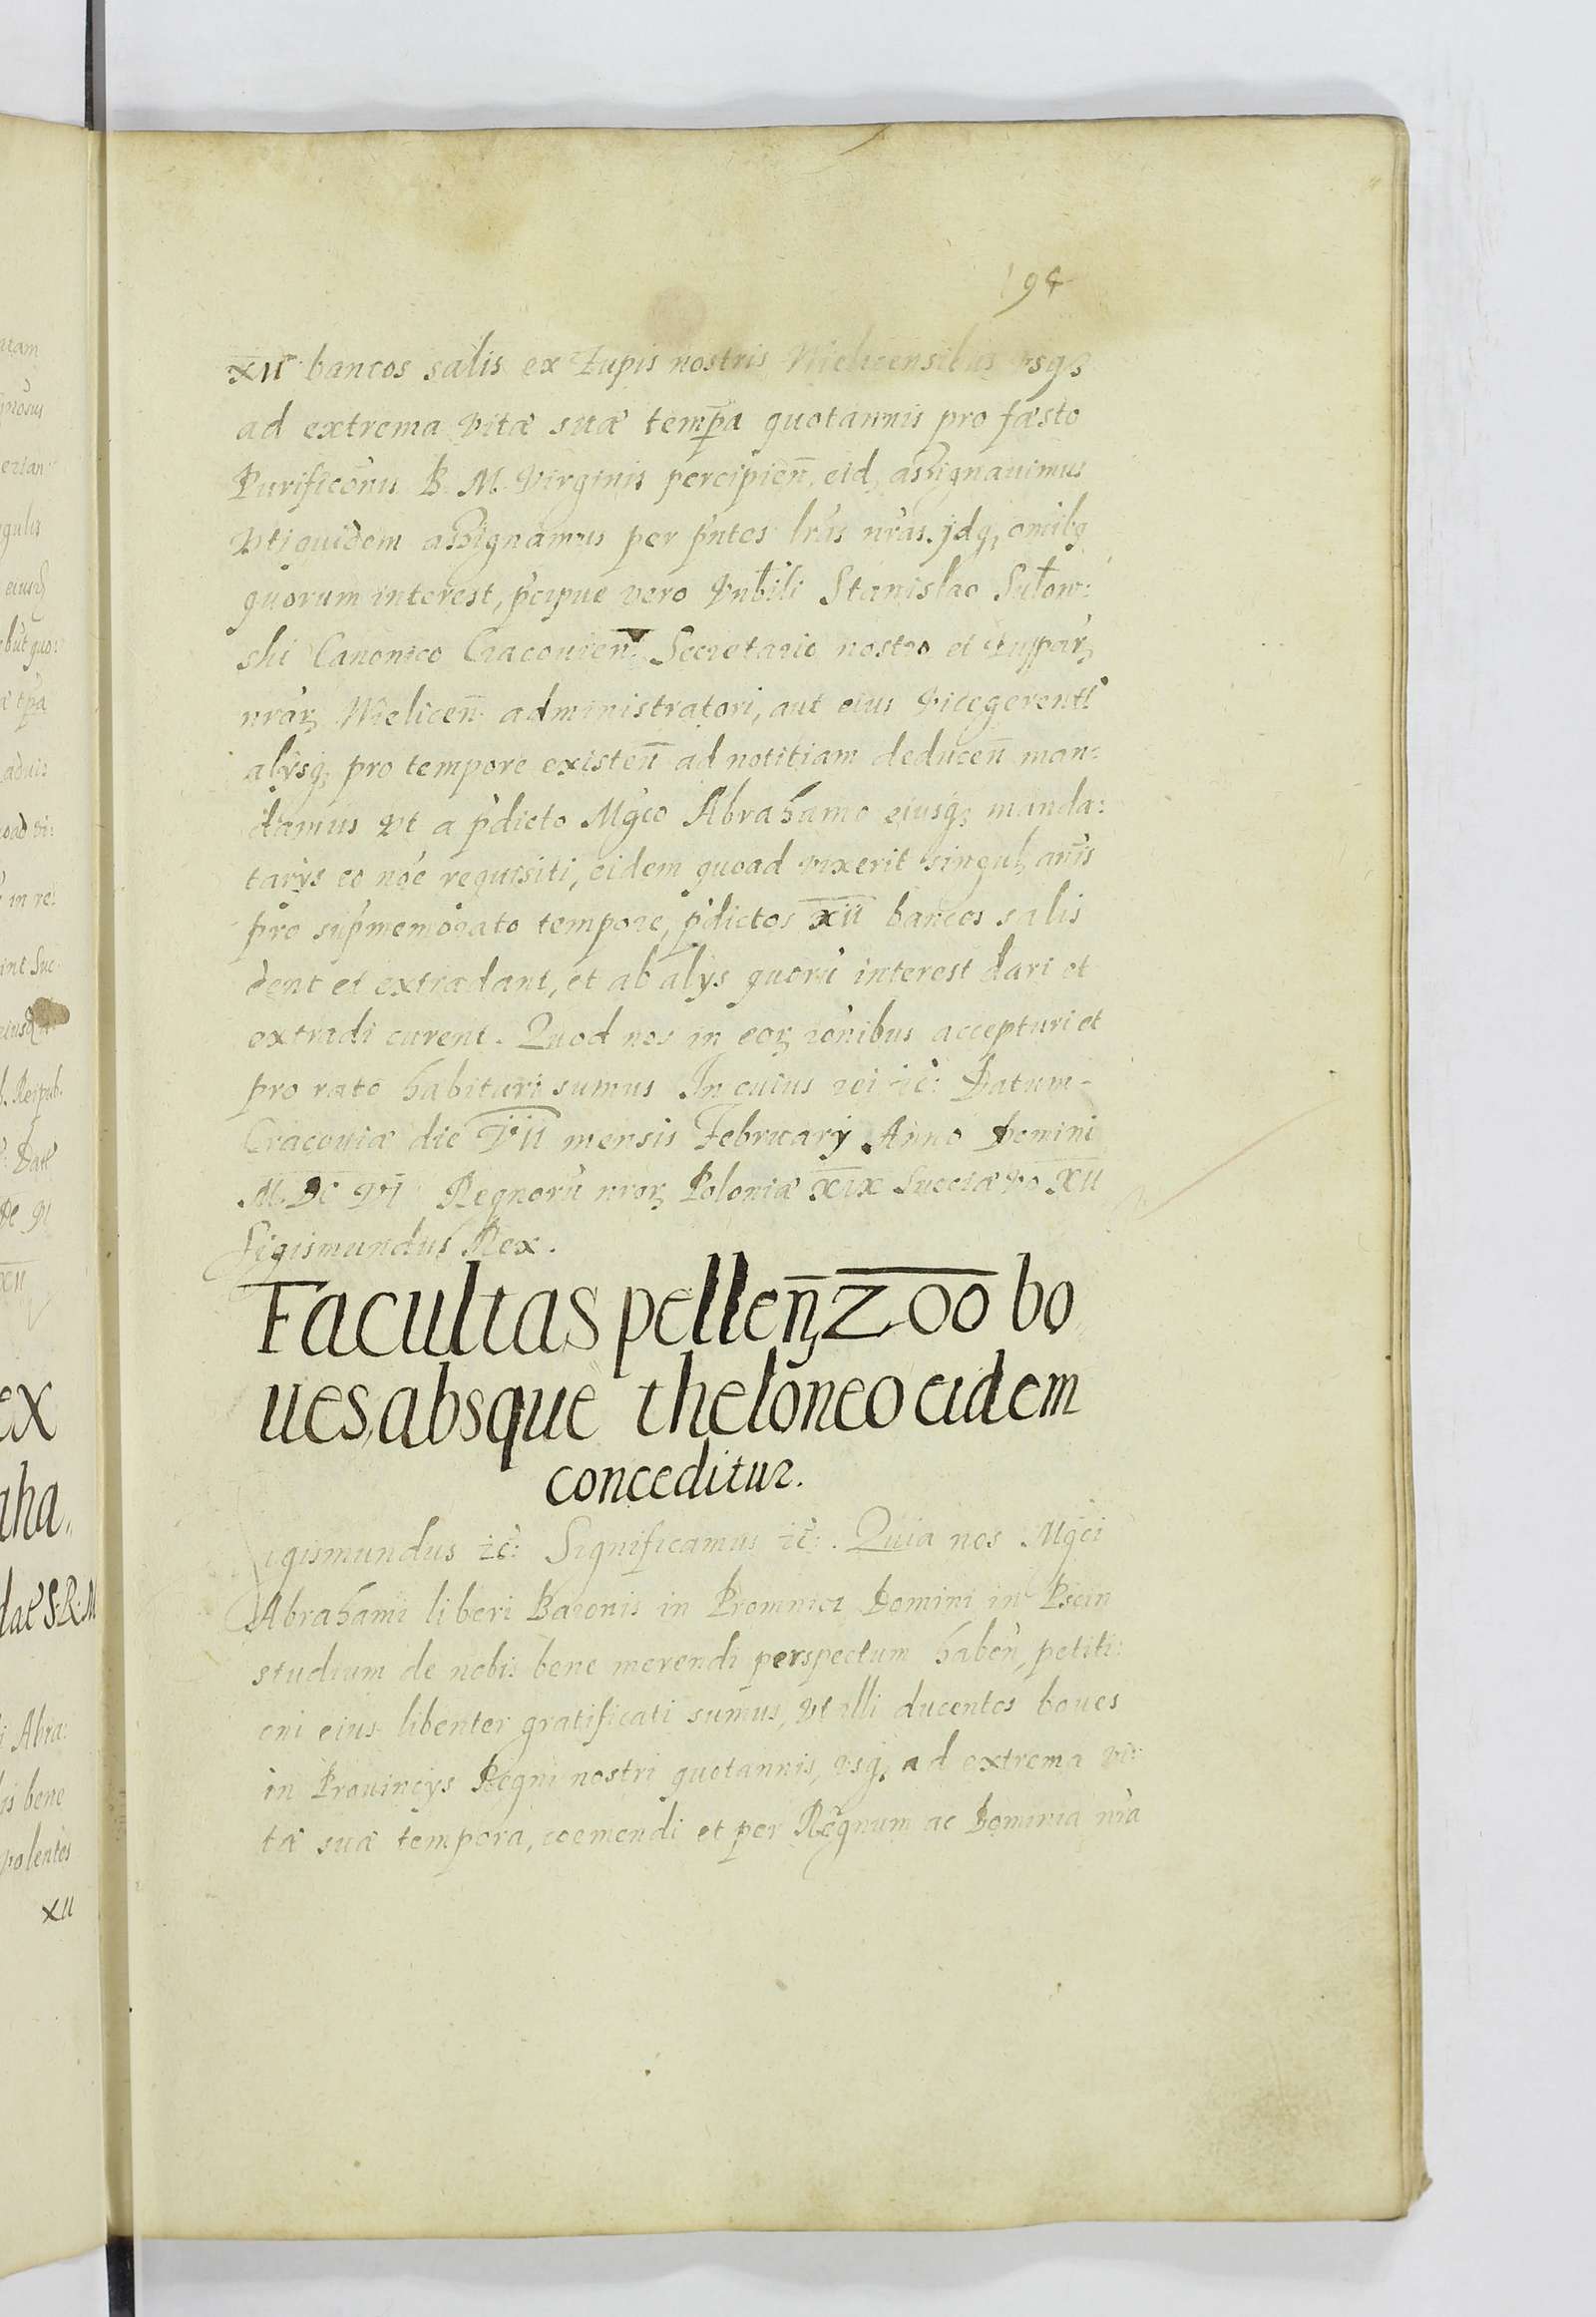 194
XII bancos salis ex Zupis nostris Vielicensibus vsq3
ad extrema vitæ suæ temp̄a quotannis pro fæsto
Purificōnis B. M. Virginis percipieñ, eid, assignauimus
Vti quidem assignamus per p̄ntes lr̄as nr̄as. jdq3 omībq
quorum interest, p̄cipue vero Vnbīli Stanislao
ski Canonico Cracouieñ. Secretario nostro et Zuppar3
nrār3 Vielicen̄ administratori, aut eius Vicegerenti
alÿsq3 pro tempore existen̄ ad notitiam deducen̄ man:
damus Vt a p̄dicto Mḡco Abrahamo eiusq3 manda:
tarÿs eo nōe requisiti, eidem quoad vixerit singul3 an̄is
pro sup̄memorato tempore, p̄dictos XII bancos salis
dent et extradant, et ab alÿs quorū interest dari et
extradi curent. Quod nos in eor3 rōnibus accepturi et
pro rato habituri sumus In cuius rei zc̄: Datum-
Cracouiæ die VII mensis Februarÿ Anno Domini
M. DC VI Regnorū nror3 Poloniæ XIX Sueciæ vo XII
Sigismundus Rex.
Facultas pellen̄3 200 bo
ues, absque theloneo eidem
conceditur.
igismundus zc̄: Significamus zc̄:. Quia nos Mgci
Abrahami liberi Baronis in Promnicz Domini in Pscin
studium de nobis bene merendi perspectum haben̄, petiti:
oni eius libenter gratificati sumus, Vt illi ducentos boues
in Prouincÿs Regni nostri quotannis, vsq3 ad extrema vi:
tæ suæ tempora, coemendi et per Regnum ac Dominia nr̄a